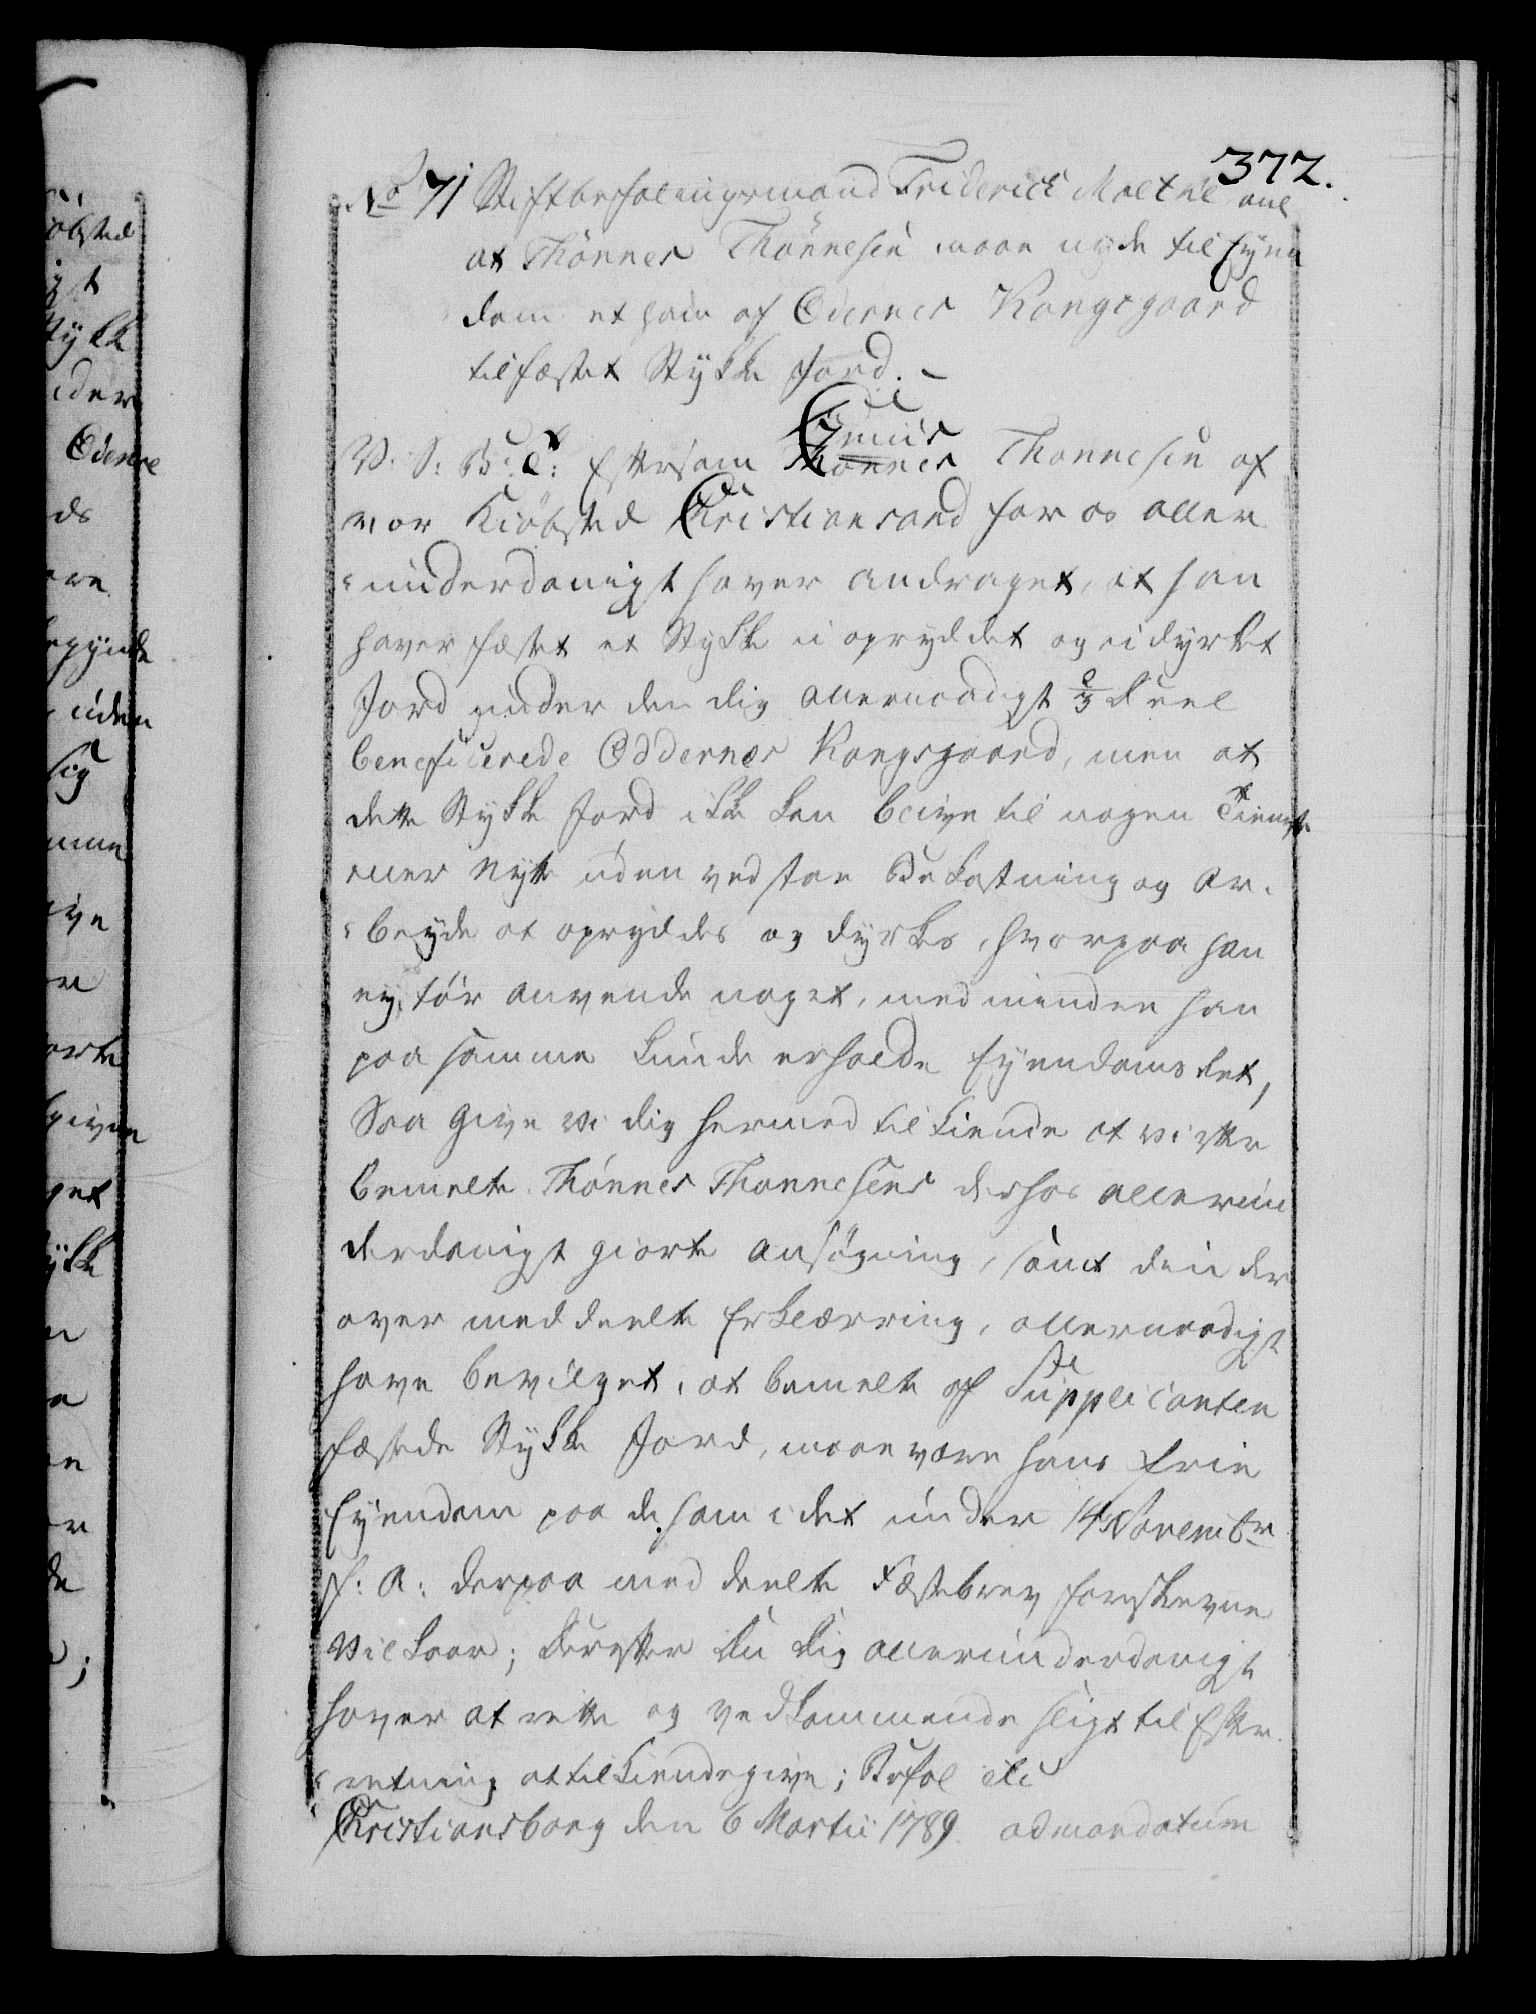 372.
No 71 Stiftbefalingsmand Friderich Moltke anl
at Thönnes Thönnesen maae nyde til Eyen
dom et ham af Odernes Kongsgaard
tilfæstet Stykke Jord.
V. S. B. T: Eftersom Thönnes Thonnesen af
vor Kiöbsted Christiansand for os aller
underdanigst haver andraget, at han
haver fæstet et Stykke u opryddet og u dyrket
Jord under den dig allernaadigst
beneficerede Oddernes Kongsgaard, men at
dette Stykke Jord ikke kan blive til nogen Tieneste
eller Nytte uden ved stor Bekostning og Ar-
beyde at opryddes og dyrkes, hvorpaa han
ey tör anvende noget, med mindre han
paa samme kunde erholde Eyendoms Ret,
Saa give vi dig hermed tilkiende at vi efter
bemelte Thönnes Thonnesens derhos allerun
derdanigst giorte Ansögning, samt din der
over meddeelte Erklærring, allernaadigst
have bevilget, at bemelte af Supplicanten
fæstede Stykke Jord, maae være hans frie
Eyendom paa de ham i det under 14 Novembr
f: A: derpaa meddeelte Fæstebrev foreskrevne
Vilkaar; Derefter Du dig allerunderdanigst
haver at rette og vedkommende sligt til Efter
retning at tilkiendegive; Befal etc
Christiansborg den 6 Martii 1789. ad mandatum